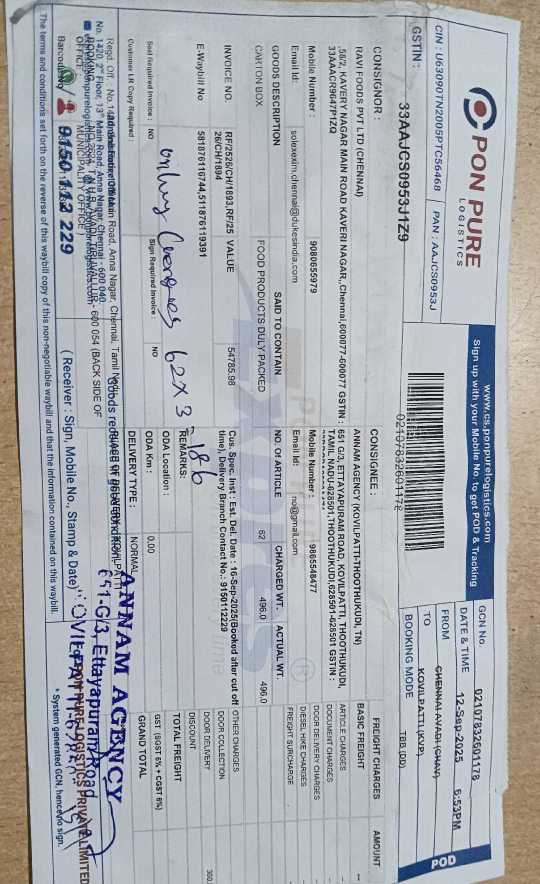 PON PURE
LOGISTICS
www.cs.ponpurelogistics.com
Sign up with your Mobile No. to get POD & Tracking
CIN : U63090TN2005PTC056468 PAN : AAJCS0953J
GSTIN : 33AAJCS0953J1Z9
02107832601178
GCN No 02107832601178
DATE & TIME 12-Sep-2025 6:53PM
FROM CHENNAI AVADI (CHAV)
TO KOVILPATTI (KVP)
BOOKING MODE TBB (DD)
POD
CONSIGNOR :
RAVI FOODS PVT LTD (CHENNAI)
,56/2, KAVERY NAGAR MAIN ROAD KAVERI NAGAR,,Chennai,600077-600077 GSTIN :
33AAACR9647P1ZQ
Mobile Number : 9080655979
Email Id: solexexim.chennai@dukesindia.com
CONSIGNEE :
ANNAM AGENCY (KOVILPATTI-THOOTHUKUDI, TN)
651 G/3, ETTAYAPURAM ROAD, KOVILPATTI, THOOTHUKUDI,
TAMIL NADU-628501,THOOTHUKUDI,628501-628501 GSTIN :
Mobile Number : 9865548477
Email Id: no@gmail.com
FREIGHT CHARGES AMOUNT
BASIC FREIGHT --
ARTICLE CHARGES --
DOCUMENT CHARGES --
DOOR DELIVERY CHARGES --
DIESEL HIKE CHARGES --
FREIGHT SURCHARGE --
GOODS DESCRIPTION SAID TO CONTAIN NO. Of ARTICLE CHARGED WT. ACTUAL WT.
CARTON BOX FOOD PRODUCTS DULY PACKED 62 496.0 496.0
INVOICE NO. RF/2526/CH/1893,RF/25
26/CH/1894
VALUE 54785.98
E-Waybill No 581876116744,511876119391
Cus. Spec. Inst : Est. Del. Date : 16-Sep-2025(Booked after cut off
time), Delivery Branch Contact No.: 9150112229
OTHER CHARGES
DOOR COLLECTION
DOOR DELIVERY 300.
DISCOUNT
TOTAL FREIGHT
GST (SGST 6% + CGST 6%)
GRAND TOTAL
62 X 3
186
REMARKS:
Seal Required Invoice : NO Sign Required Invoice : NO
Customer LR Copy Required :
ODA Location :
ODA Km : 0.00
DELIVERY TYPE : NORMAL
9150 112 229
MUNICIPALITY OFFICE )
( Receiver : Sign, Mobile No., Stamp & Date)
ANNAM AGENCY
651-G/3, Ettayapuram Road
PON PURE LOGISTICS PRIVATE LIMITED
The terms and conditions set forth on the reverse of this waybill copy of this non-negotiable waybill and that the information contained on this waybill.
* System generated GCN, hence no sign.